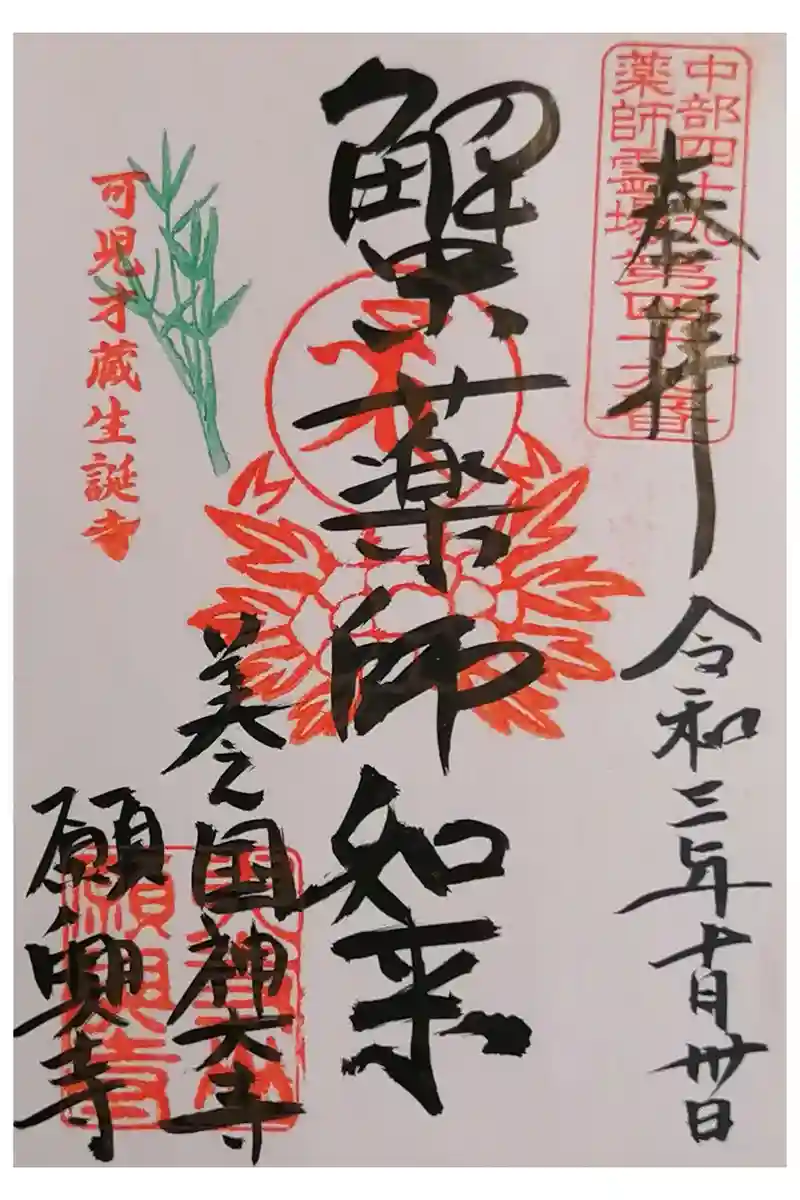 中部四十九
薬師霊場第四十九番
奉拝
令和三年十月卅日
蟹薬師如来
美之国神大寺
願興寺
可児才蔵生誕寺